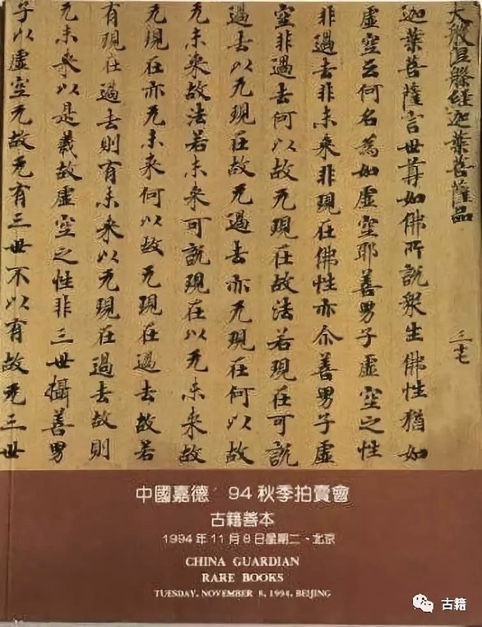 大般涅槃經迦葉菩薩品 三十七
迦葉菩薩言世尊如佛所說衆生佛性猶如
虛空云何名為如虛空耶善男子虛空之性
非過去非未来非現在佛性亦尒善男子虛
空非過去何以故无現在故法若現在可說
過去以无現在故无過去亦无現在何以故
无未来故法若未来可說現在以无未来故
无現在亦无未来何以故无現在過去故若
有現在過去則有未来以无現在過去故則
无未来以是義故虛空之性非三世攝善男
子以虛空无故无有三世不以有故无三世
中國嘉德'94秋季拍賣會
古籍善本
1994年11月8日星期二·北京
CHINA GUARDIAN
RARE BOOKS
TUESDAY, NOVEMBER 8, 1994, BEIJING
古籍